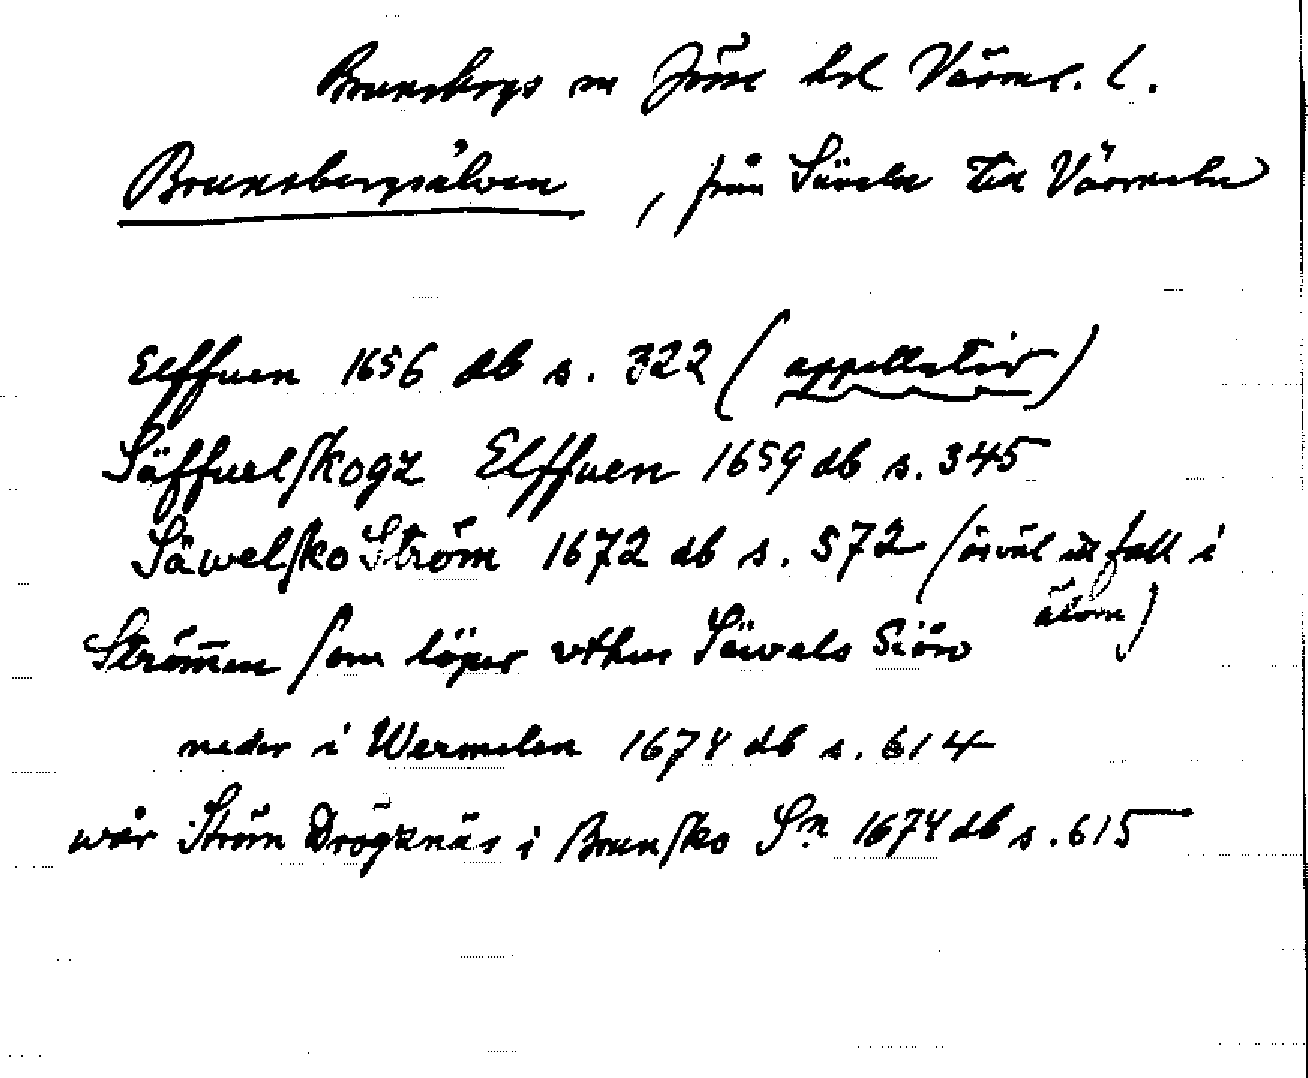 Brunskogs sn Jösse hd Värml. l.
Brunsbergsälven, från Säveln till Värmeln
Elffuen 1656 db s. 322 (appellativ)
Säffuelskogz Elffuen 1659 db s. 345
Säwelsko Ström 1672 db s. 572 (ett fall i
älven)
Strömen som löper vthur Säwals Siön
neder i Wermelen 1674 db s. 614
wår Ström Drögznäs i Brunsko Sn 1674 db s. 615